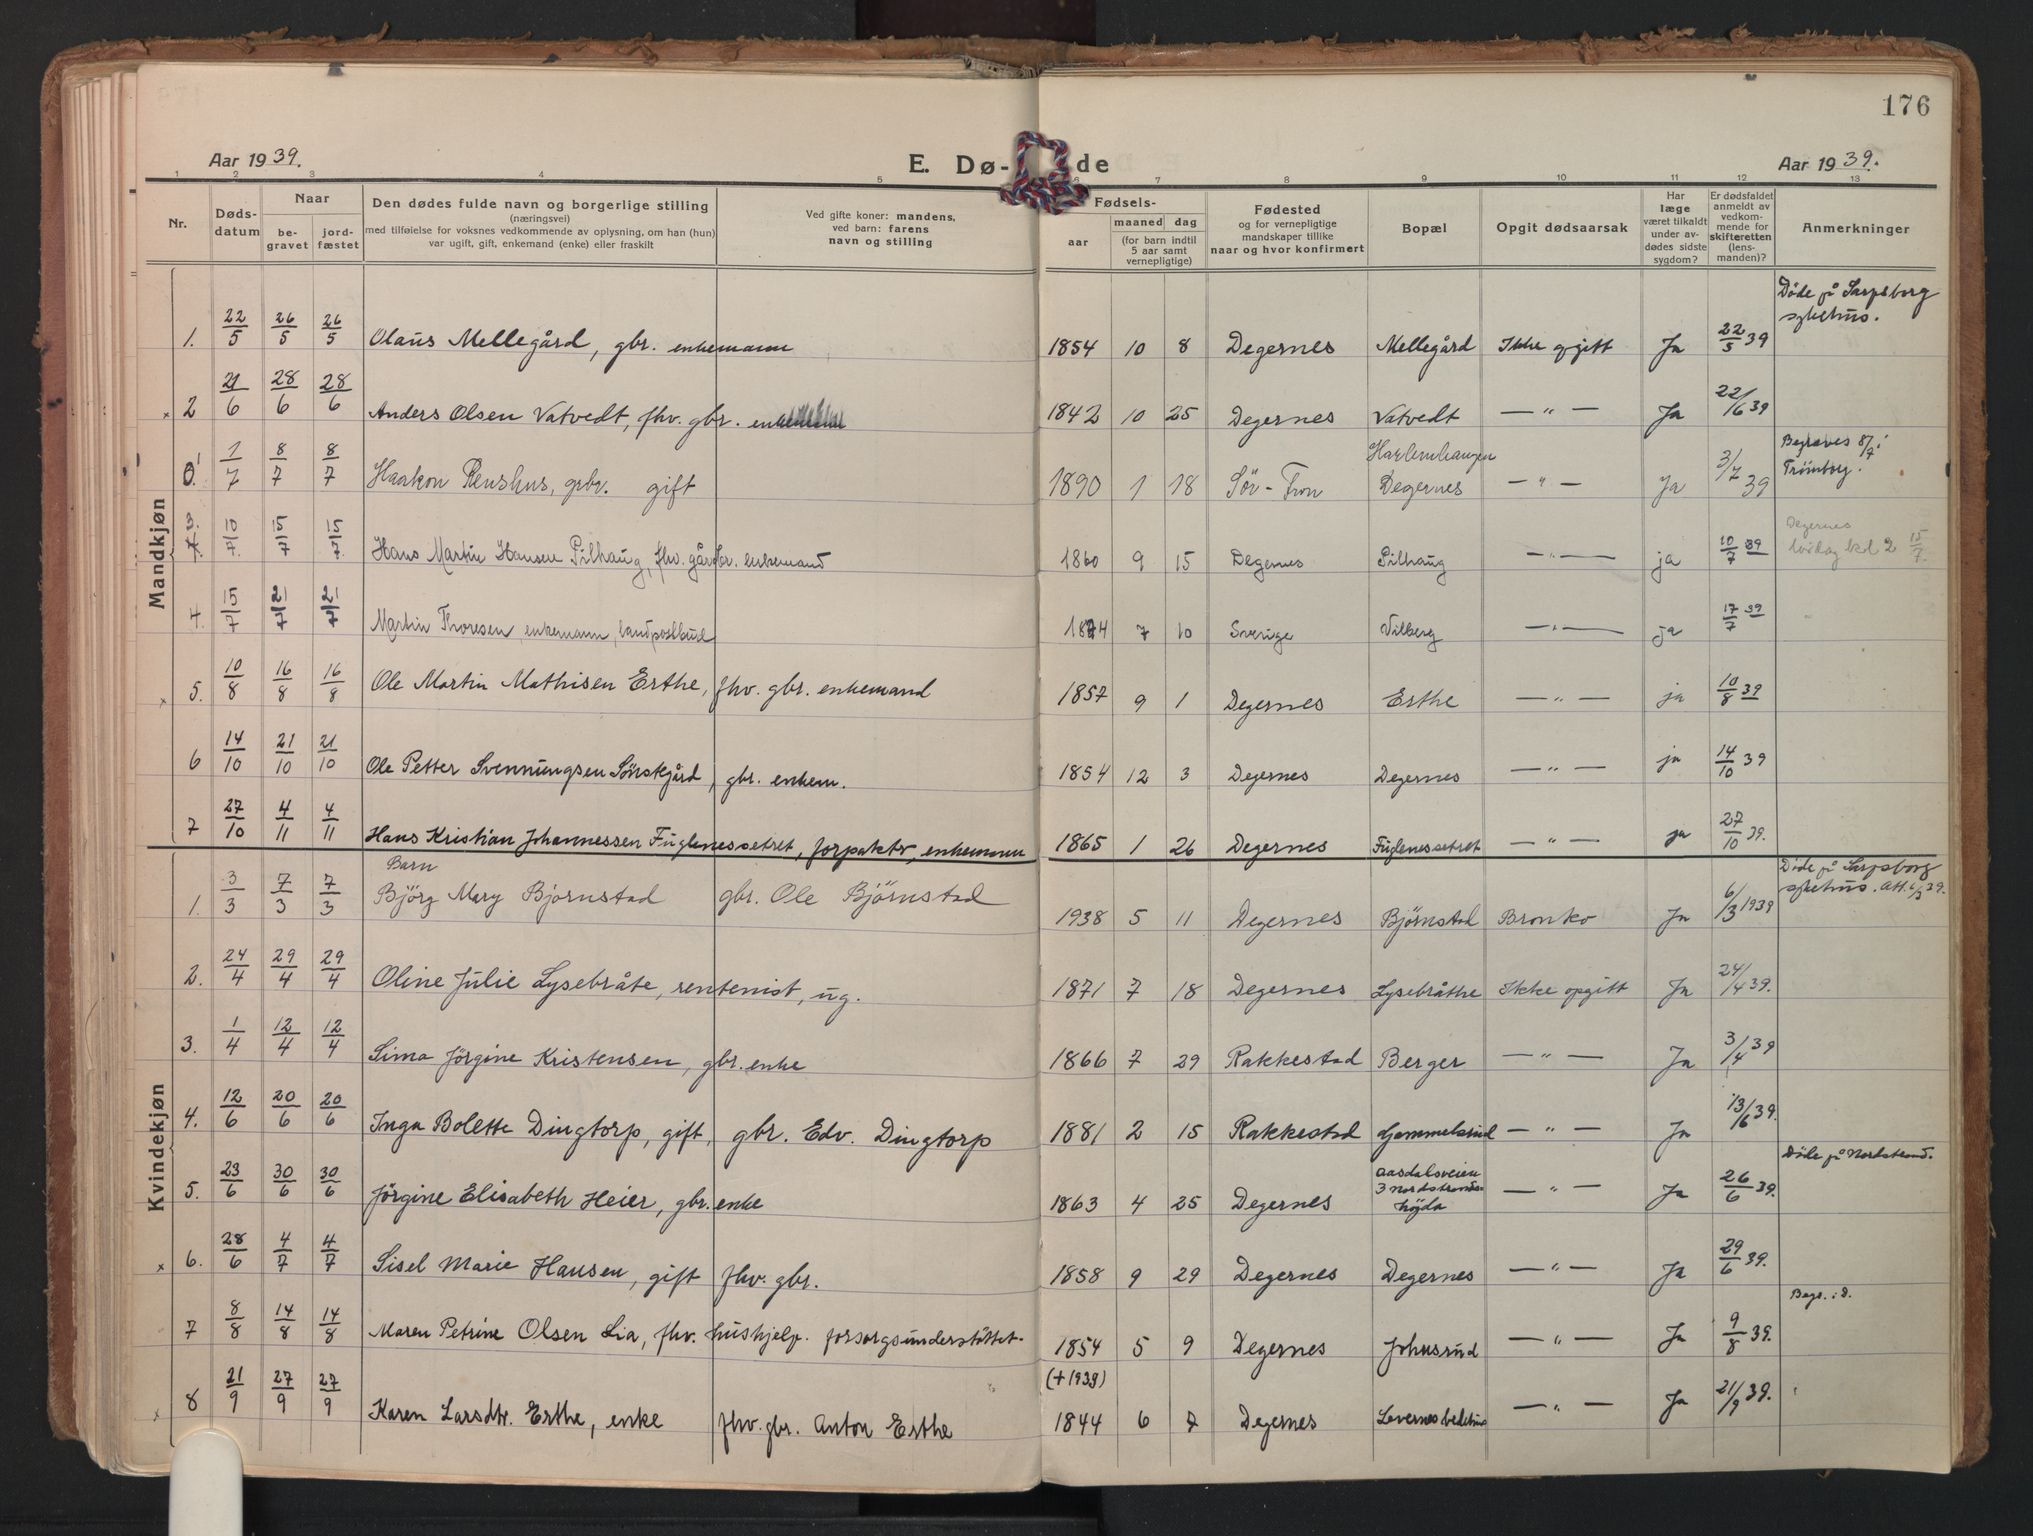 176
Aar 1939.
E. Dø-de
Aar 1939.
1 2 3 4 5 6 7 8 9 10 11 12 13
Nr.
Døds-datum
Naar
be-gravet
jord-fæstet
Den dødes fulde navn og borgerlige stilling
(næringsvei)
med tilføielse for voksnes vedkommende av oplysning, om han (hun)
var ugift, gift, enkemand (enke) eller fraskilt
Ved gifte koner: mandens,
ved barn: farens
navn og stilling
Fødsels-
aar
maaned dag
(for barn indtil
5 aar samt
vernepligtige)
Fødested
og for vernepligtige
mandskaper tillike
naar og hvor konfirmert
Bopæl
Opgit dødsaarsak
Har
læge
været tilkaldt
under av-
dødes sidste
sygdom?
Er dødsfaldet
anmeldt av
vedkom-
mende for
skifteretten
(lens-
manden)?
Anmerkninger
Mandkjøn
1. 22/5 26/5 26/5 Olaus Mellegård, gbr. enkemann 1854 10 8 Degernes Mellegård Ikke opgitt Ja 22/5 39 Døde på Sarpsborg sykehus.
x 2 21/6 28/6 28/6 Anders Olsen Vatvedt, fhv. gbr. 1842 10 25 Degernes Vatvedt — " — Ja 22/6 39
0! 1/7 8/7 8/7 Haakon Renshus, grbr. gift 1890 1 18 Sör-Fron Degernes — " — Ja 3/7 39 Begraves 8/7 i Trömborg.
3. 10/7. 15/7 15/7. Hans Martin Hansen Pilhaug, fhv. gårdbr. enkemand 1860 9 15 Degernes Pilhaug — " — ja 10/7 39 Degernes lördag kl 2 15/7.
4. 15/7 21/7 21/7 Martin Thoresen, enkemann, landpostbud 1874 7 10 Sverige Vilberg — " — ja 17/7 39
x 5. 10/8 16/8 16/8 Ole Martin Mathisen Erthe, fhv. gbr. enkemand 1857 9 1 Degernes Erthe — " — ja 10/8 39
6 14/10 21/10 21/10 Ole Petter Svenningsen Sönstegård, gbr. enkem. 1854 12 3 Degernes Degernes — " — ja 14/10 39
7 27/10 4/11 4/11 Hans Kristian Johannessen Fuglenessetret, forpaktr, enkemann 1865 1 26 Degernes Fuglenessetret — " — ja 27/10 39.
Kvindekjøn
1. 3/3 7/3 7/3 Barn Björg Mary Bjørnstad gbr. Ole Björnstad 1938 5 11 Degernes Bjørnstad Bronko Ja 6/3 1939 Døde på Sarpsborg sykehus. Att. 6/3 39.
2. 24/4 29/4 29/4 Oline Julie Lysebråte, rentenist, ug. 1871 7 18 Degernes Lysebråthe Ikke opgitt Ja 24/4 39.
3. 1/4 12/4 12/4 Sima Jörgine Kristensen, gbr. enke 1866 7 29 Rakkestad Berger — " — Ja 3/4 39
4. 12/6 20/6 20/6 Inga Bolette Dingtorp, gift, gbr. Edv. Dingtorp 1881 2 15 Rakkestad Gammelsrud — " — Ja 13/6 39.
5. 23/6 30/6 30/6 Jörgine Elisabeth Heier, gbr. enke 1863 4 25 Degernes Aasdalsveien 3 Nordstrands-høgda — " — Ja 26/6 39. Döde på Nordstrand.
x 6. 28/6 4/7 4/7 Sisel Marie Hansen, gift fhv. gbr. 1858 9 29 Degernes Degernes — " — Ja 29/6 39.
7 8/8 14/8 14/8 Maren Petrine Olsen Lia, fhv. hushjelp. forsorgsunderstöttet. 1854 5 9 Degernes Johusrud — " — Ja 9/8 39. Begr. i
x 8 21/9 27/9 27/9 Karen Larsdtr. Erthe, enke fhv. gbr. Anton Erthe (+ 1939) 1844 6 7 Degernes — " — Ja 21/9 39.